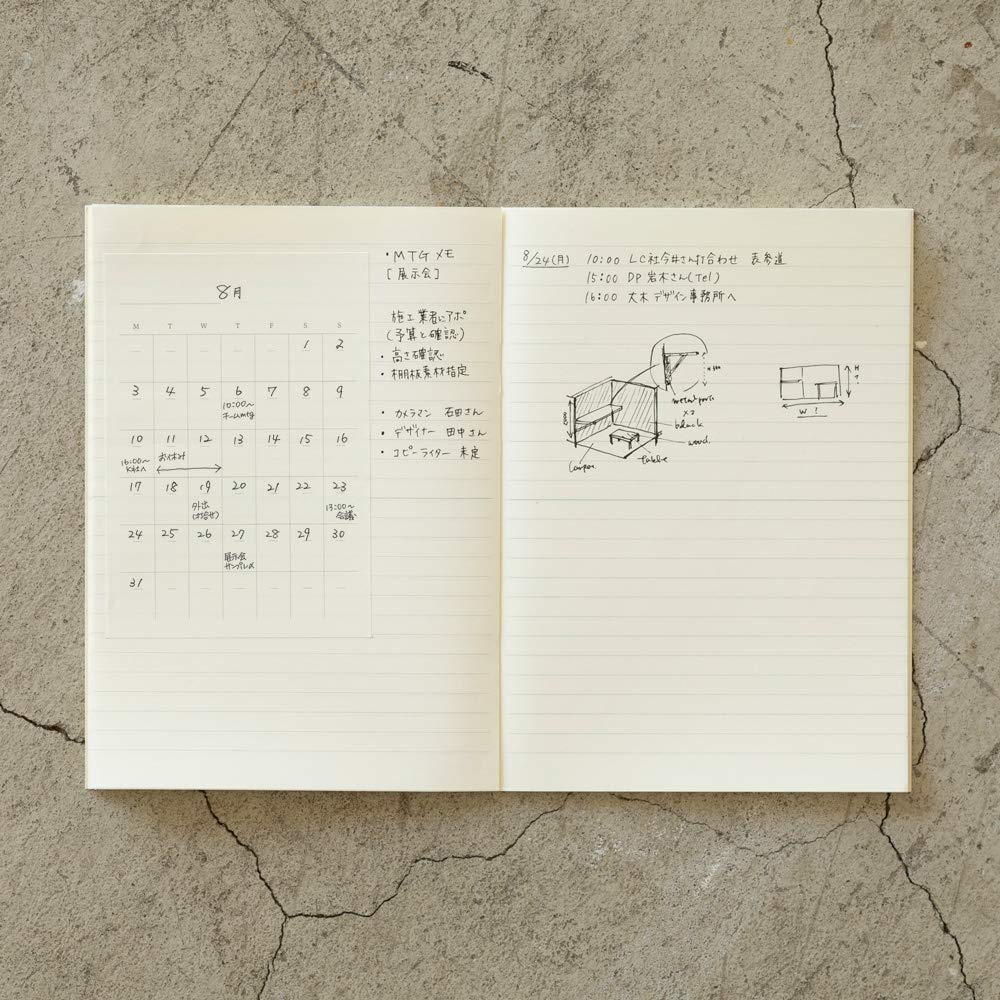 8月
M T W T F S S
1 2
3 4 5 6 7 8 9
10:00〜
チームmtg
10 11 12 13 14 15 16
16:00〜
K社へ
お休み
17 18 19 20 21 22 23
外出
(打合せ)
13:00〜
会議
24 25 26 27 28 29 30
展示会
サンプル〆
31
・MTGメモ
[展示会]
施工業者にアポ
(予算と確認)
・高さ確認
・棚板素材指定
・カメラマン 石田さん
・デザイナー 田中さん
・コピーライター 未定
8/24(月) 10:00 LC社今井さん打合わせ 表参道
15:00 DP岩木さん(Tel)
16:00 大木デザイン事務所へ
metal parts
x2
black
wood
table
H
W !